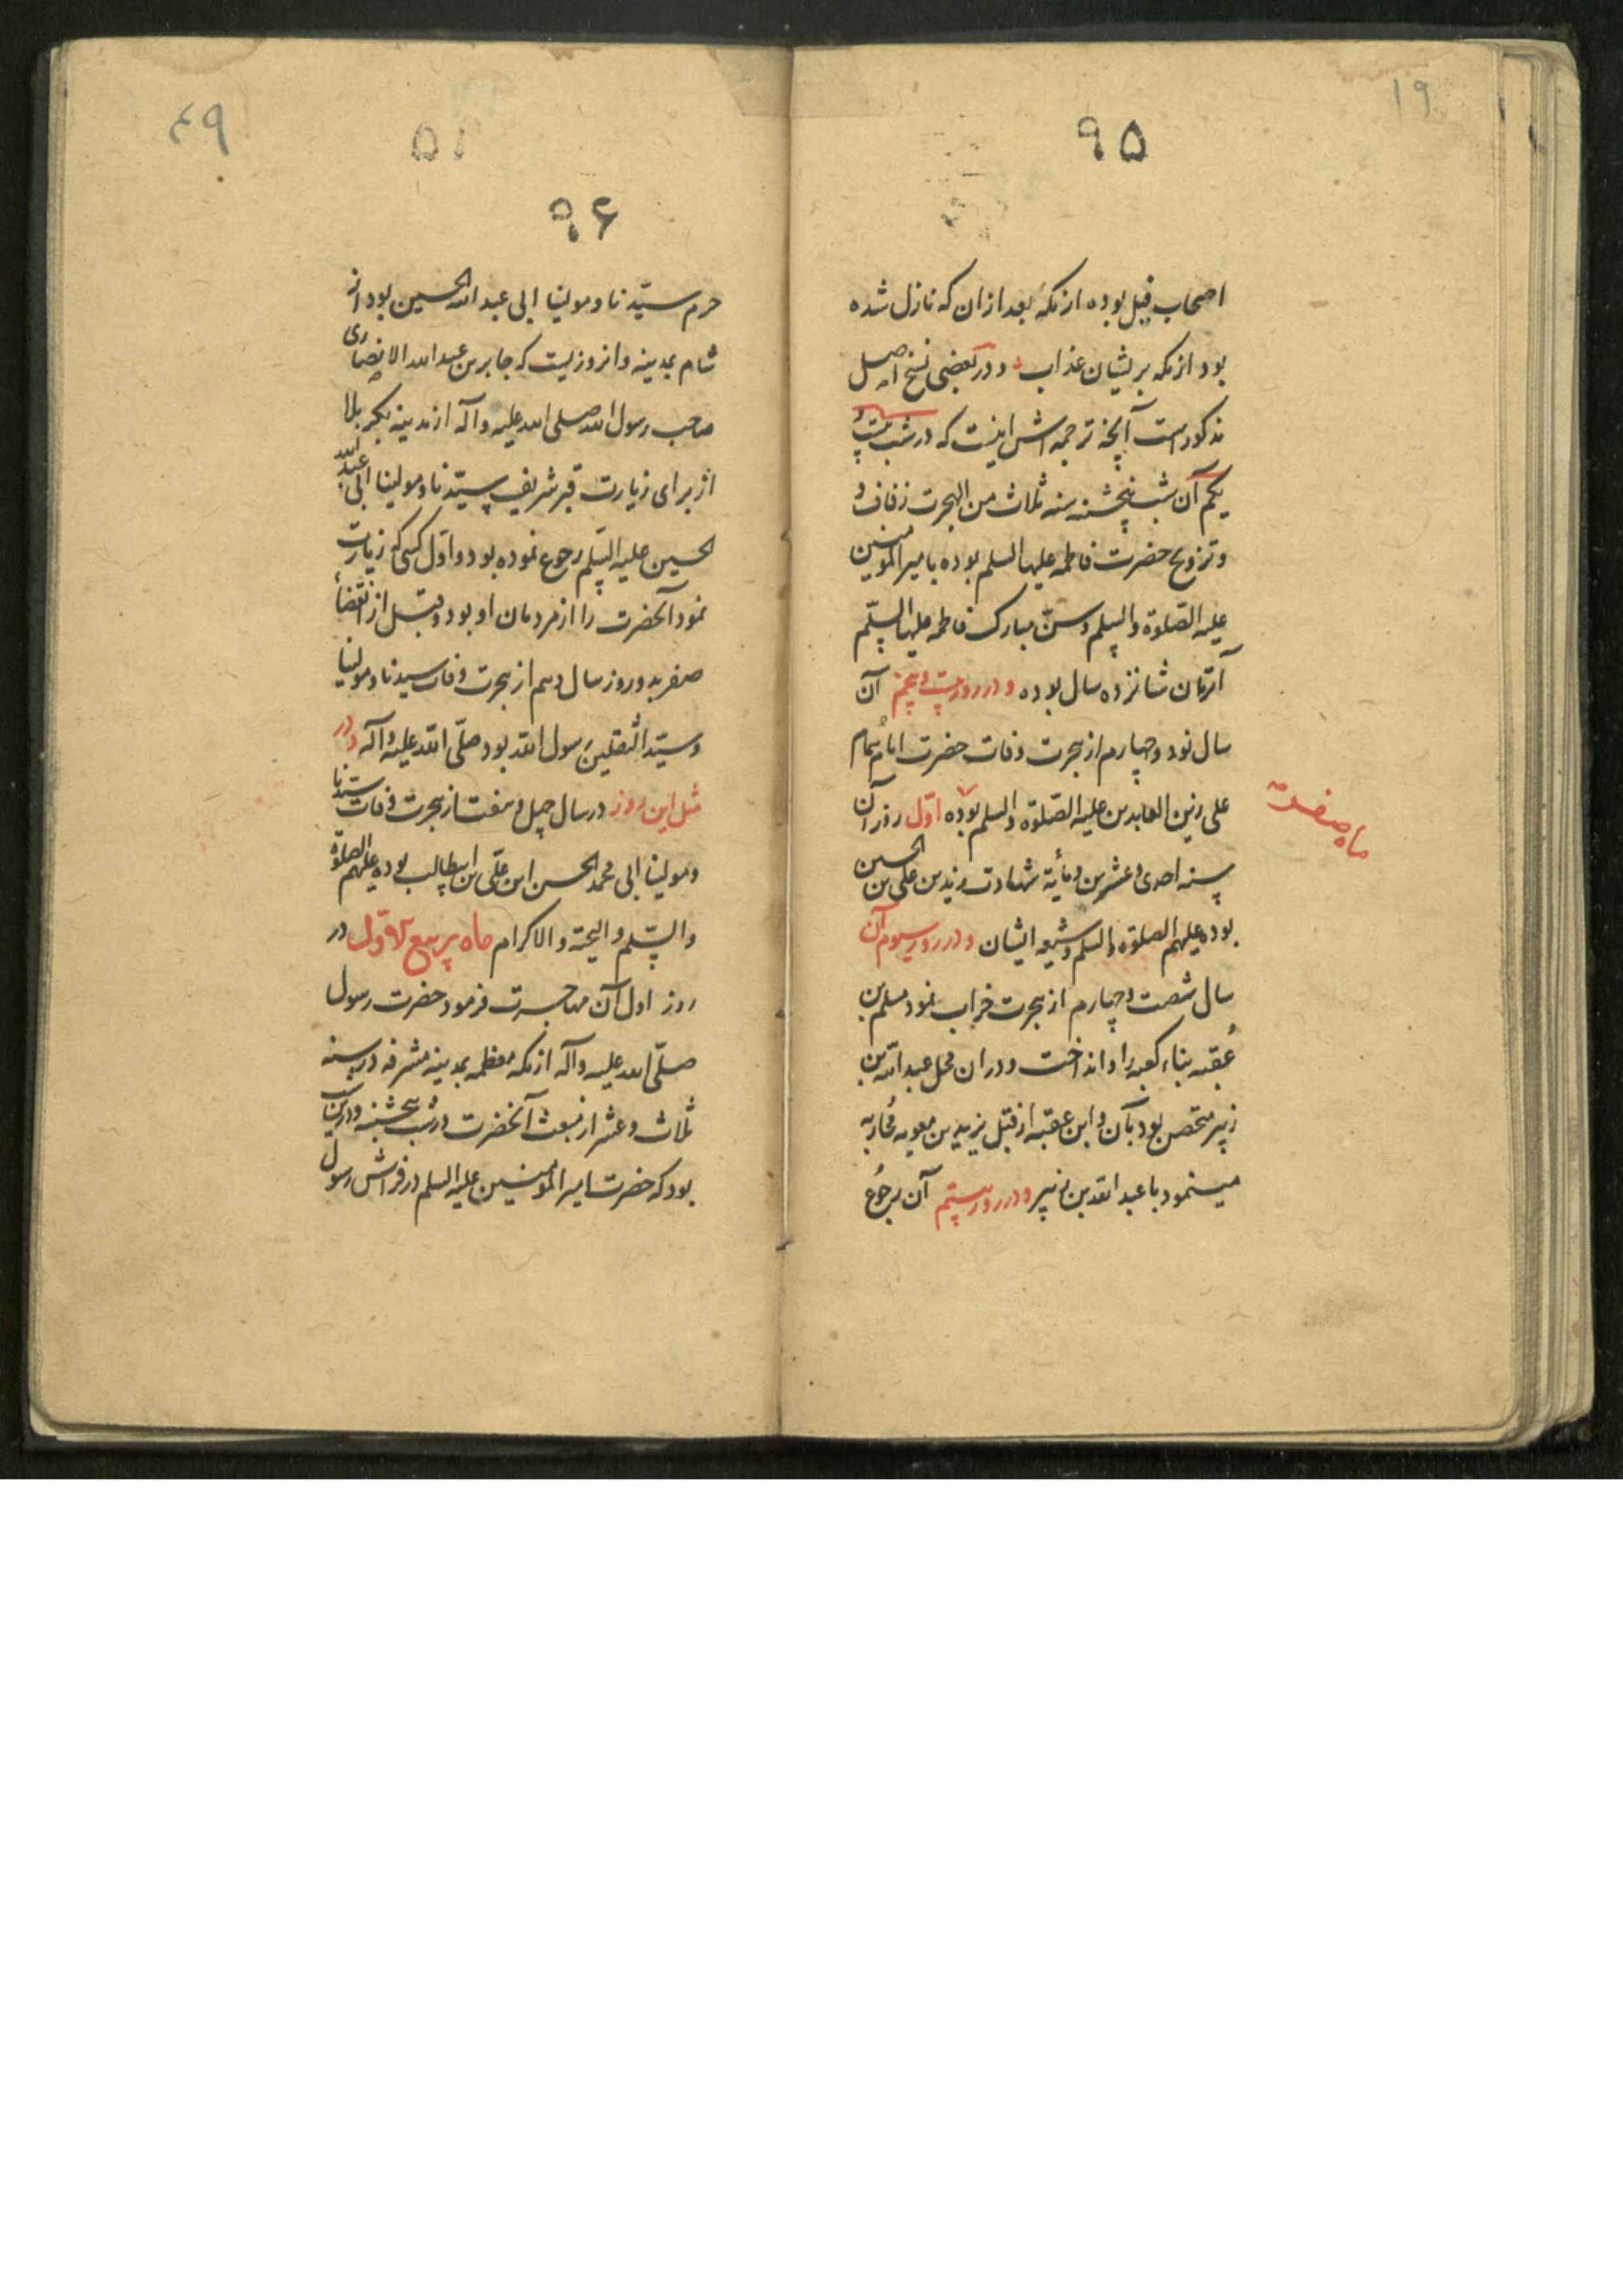 ۱۹
۹۵
اصحاب فیل بوده از مکه بعد از ان که نازل شده
بود از مکه بر یشان عذاب و در بعضی نسخ اصل
مذکور است آنچه ترجمه اش اینست که در شب بیست و
یکم آن شب پنجشنبه سنه ثلاث من الهجرت زفاف و
وتزویج حضرت فاطمه علیها السلم بوده با میر المؤمنین
علیه الصّلوة والسلم وسنّ مبارک فاطمه علیها السّلم
آنزمان شانزده سال بوده و در روز بیست و پنجم آن
سال نود و چهارم از هجرت وفات حضرت امام همام
علی زین العابدین علیه الصّلوة والسلم بوده اوّل روز آن
ماه صفر
سنه احدی و عشرین و مأیة شهادت زید بن علی بن الحسین
بوده علیهم الصلوة والسلم و شیعه ایشان و در روز سیوم آن
سال شصت و چهارم از هجرت خراب نمود مسلم بن
عُقبه بناء کعبه را و انداخت و دران محل عبد الله بن
زبیر متحصن بود بآن و ابن عقبه از قبل یزید بن معویه مُحاربه
مینمود با عبد الله بن زبیر و در روز بیستم آن رجُوع
۴۹
۵۱
۹۶
حرم سیّدنا و مولینا ابی عبد الله الحسین بود از
شام بمدینه و انروزیست که جابر بن عبد الله الانصاری
صاحب رسول الله صلی الله علیه وآله از مدینه بکربلا
از برای زیارت قبر شریف سیّدنا و مولینا ابی عبد الله
الحسین علیه السّلم رجوع نموده بود و اوّل کسی که زیارت
نمود آنحضرت را از مردمان او بود و قبل از انقضأ
صفر بدو روز سال دهم از هجرت وفات سیدنا و مولینا
و سیّد الثقلین رسول الله بود صلّی الله علیه وآله و در
مثل این روز در سال چهل و هفت از هجرت وفات سیّدنا
ومولینا ابی محمد الحسن ابن علّی ابن ابیطالب بوده علیهم الصلوة
والسّلم والتحیة والاکرام ماه ربیع الاوّل در
روز اول آن مهاجرت فرمود حضرت رسول
صلّی الله علیه وآله از مکه معظمه بمدینه مشرفه در سنه
ثلاث و عشر از مبعث آنحضرت در شب پنجشنبه و در این شب
بود که حضرت امیر المؤمنین علیه السلم در فراش رسول